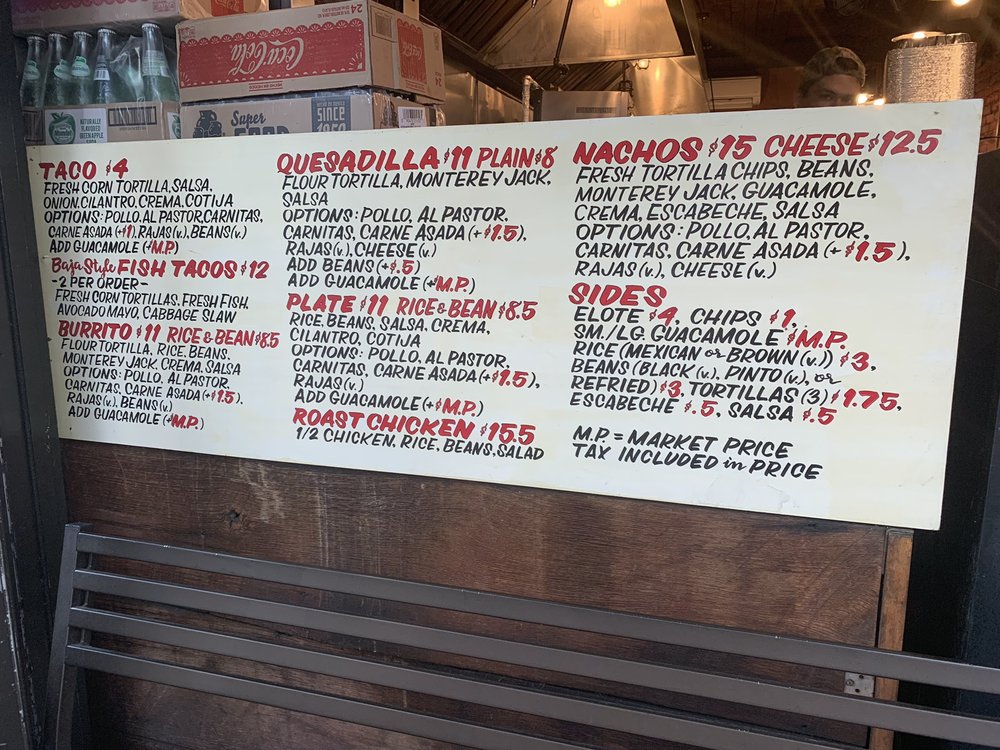 Coca-Cola
24
Super
SINCE
1950
NATURALLY
FLAVORED
GREEN APPLE
TACO $4
FRESH CORN TORTILLA, SALSA,
ONION, CILANTRO, CREMA, COTIJA
OPTIONS: POLLO, AL PASTOR, CARNITAS,
CARNE ASADA (+$1), RAJAS (v.), BEANS (v.)
ADD GUACAMOLE (+M.P.)
Baja Style FISH TACOS $12
-2 PER ORDER-
FRESH CORN TORTILLAS, FRESH FISH,
AVOCADO MAYO, CABBAGE SLAW
BURRITO $11 RICE & BEAN $8.5
FLOUR TORTILLA, RICE, BEANS,
MONTEREY JACK, CREMA, SALSA
OPTIONS: POLLO, AL PASTOR,
CARNITAS, CARNE ASADA (+$1.5),
RAJAS (v.), BEANS (v.)
ADD GUACAMOLE (+M.P.)
QUESADILLA $11 PLAIN $8
FLOUR TORTILLA, MONTEREY JACK,
SALSA
OPTIONS: POLLO, AL PASTOR,
CARNITAS, CARNE ASADA (+$1.5),
RAJAS (v.), CHEESE (v.)
ADD BEANS (+$.5)
ADD GUACAMOLE (+M.P.)
PLATE $11 RICE & BEAN $8.5
RICE, BEANS, SALSA, CREMA,
CILANTRO, COTIJA
OPTIONS: POLLO, AL PASTOR,
CARNITAS, CARNE ASADA (+$1.5),
RAJAS (v.)
ADD GUACAMOLE (+$M.P.)
ROAST CHICKEN $15.5
1/2 CHICKEN, RICE, BEANS, SALAD
NACHOS $15 CHEESE $12.5
FRESH TORTILLA CHIPS, BEANS,
MONTEREY JACK, GUACAMOLE,
CREMA, ESCABECHE, SALSA
OPTIONS: POLLO, AL PASTOR,
CARNITAS, CARNE ASADA (+$1.5),
RAJAS (v.), CHEESE (v.)
SIDES
ELOTE $4, CHIPS $1,
SM./LG. GUACAMOLE $M.P.
RICE (MEXICAN or BROWN (v.)) $3,
BEANS (BLACK (v.), PINTO (v.), or
REFRIED) $3, TORTILLAS (3) $1.75,
ESCABECHE $.5, SALSA $.5
M.P. = MARKET PRICE
TAX INCLUDED in PRICE